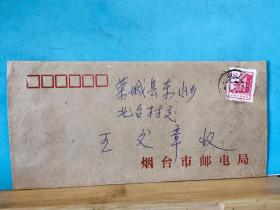 荣城县东山乡
北台村交
王文章收
烟台市邮电局